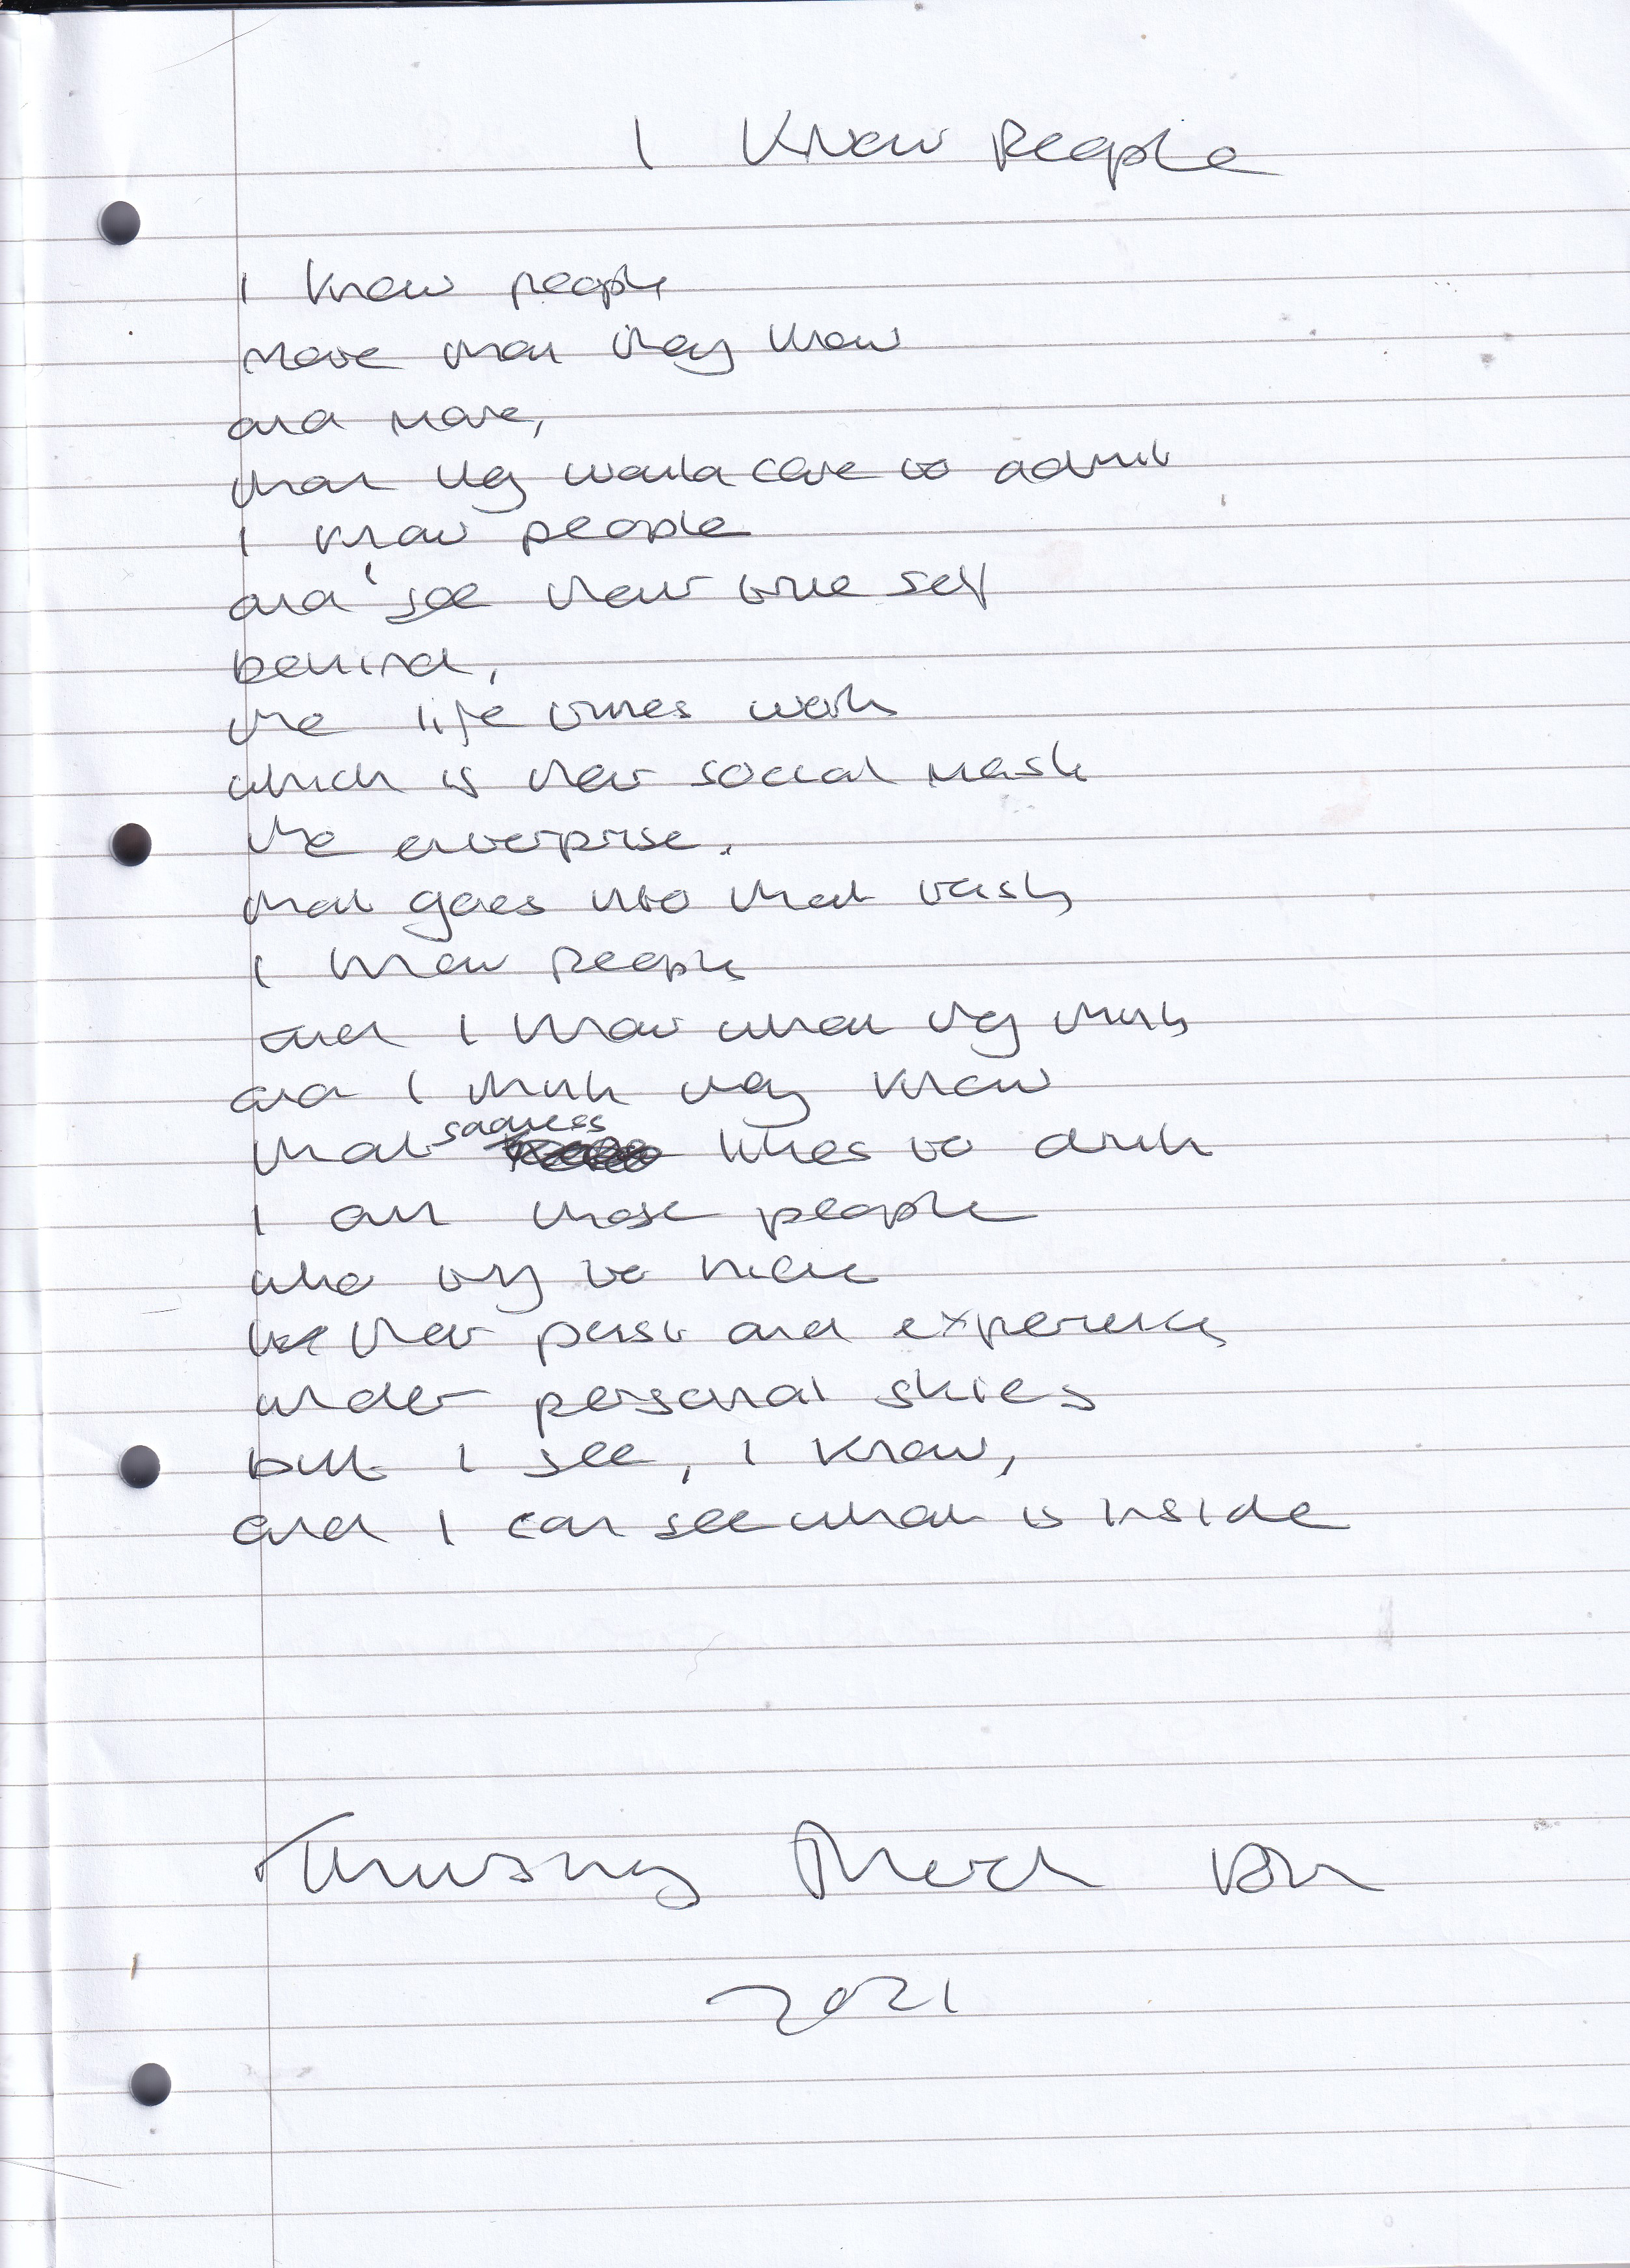 I Know People
I know people
more than they know
and more,
than they would care to admit
I know people
and see their true self
behind,
the life times work
which is their social mask
the enterprise.
that goes into that task
I know people
and I know what they think
and I think they know
that sadness likes to drink
I am those people
who try to hide
their past and experiences
under personal skies
but I see, I know,
and I can see what is inside
Thursday March
2021